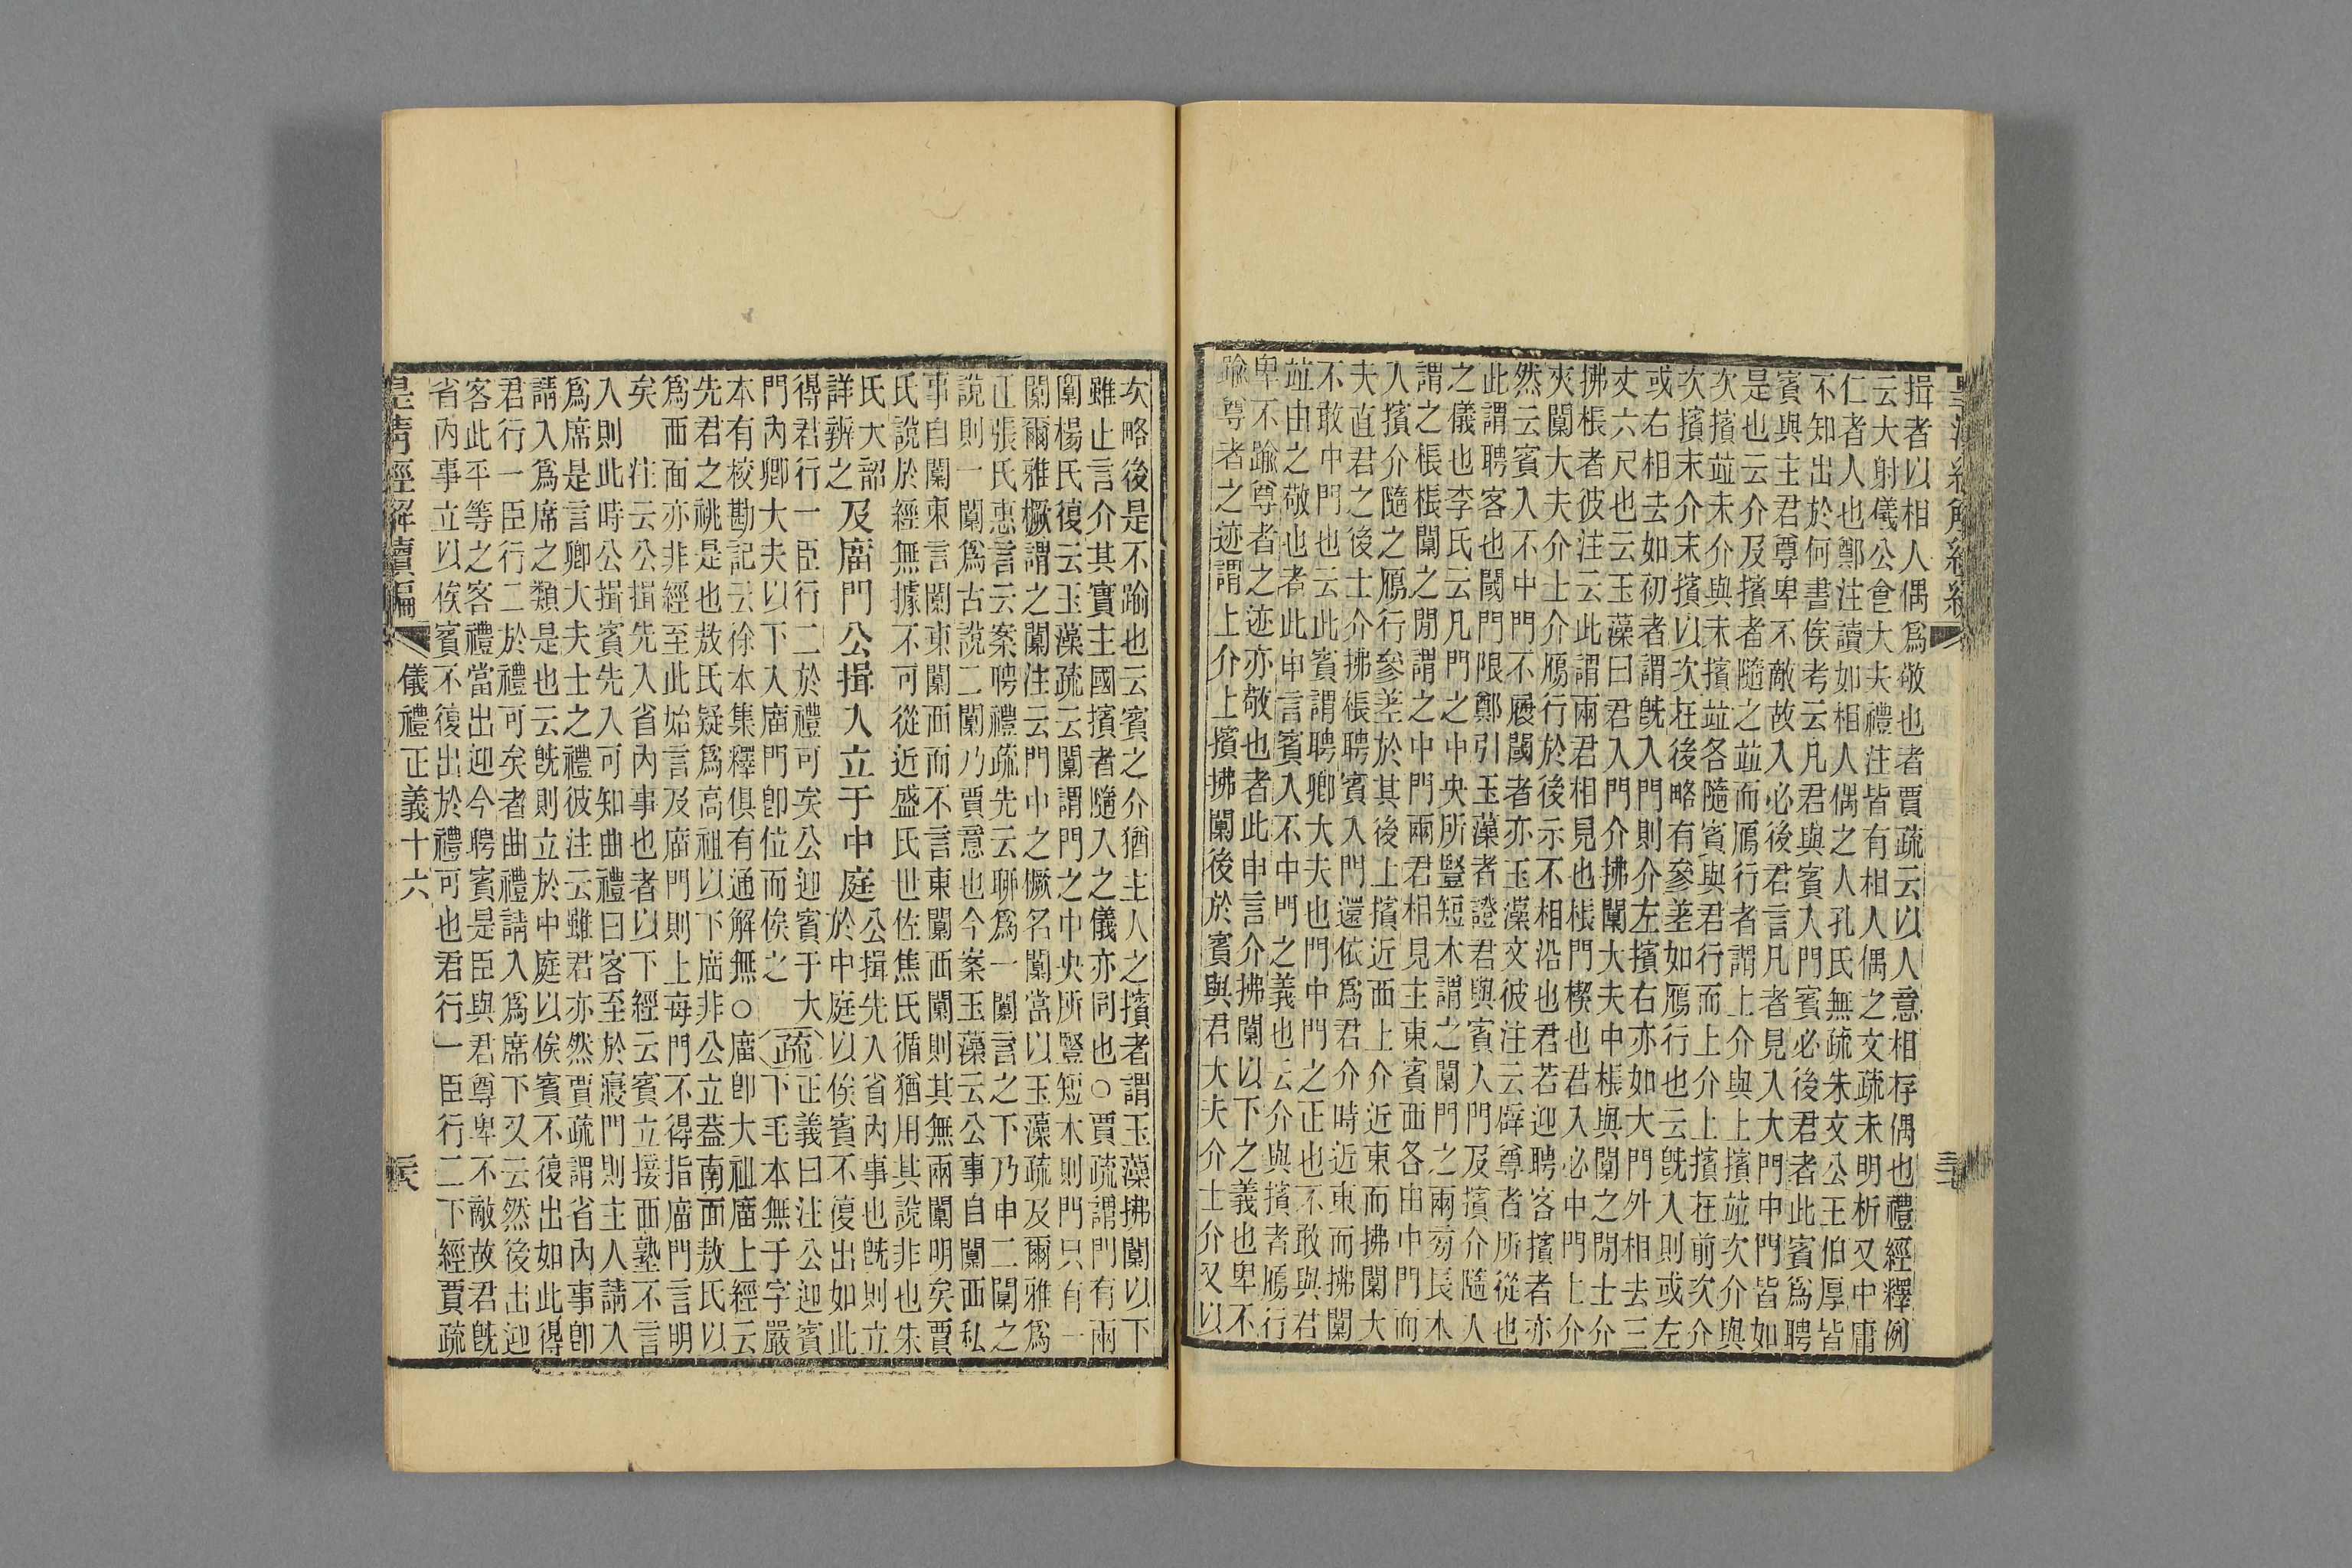 皇清經解續編
揖者以相人偶爲敬也者賈疏云以人意相存偶也禮經釋例
云大射儀公食大夫禮注皆有相人偶之文疏未明析又中庸
仁者人也鄭注讀如相人偶之人孔氏無疏朱文公王伯厚皆
不知出於何書俟考云凡君與賓入門賓必後君者此賓爲聘
賓與主君尊卑不敵故入必後君言凡者見入大門中門皆如
是也云介及擯者隨之竝而鴈行者謂上介與上擯竝次介與
次擯竝末介與末擯竝各隨賓與君行而上介上擯在前次介
次擯末介末擯以次在後略有參差如鴈行也云旣入則或左
或右相去如初者謂旣入門則介左擯右亦如大門外相去三
丈六尺也云玉藻曰君入門介拂闑大夫中棖與闑之閒士介
拂棖者彼注云此謂兩君相見也棖門楔也君入必中門上介
夾闑大夫介士介鴈行於後示不相沿也君若迎聘客擯者亦
然云賓入不中門不履閾者亦玉藻文彼注云辟尊者所從也
此謂聘客也閾門限鄭引玉藻者證君與賓入門及擯介隨人
之儀也李氏云凡門之中央所豎短木謂之闑門之兩旁長木
謂之棖棖闑之閒謂之中門兩君相見主東賓西各由中門而
入擯介隨之鴈行參差於其後上擯近西上介近東而拂闑大
夫直君之後士介拂棖聘賓入門還依爲君介時近東而拂闑
不敢中門也云此賓謂聘卿大夫也門中門之正也不敢與君
竝由之敬也者此申言賓入不中門之義也云介與擯者鴈行
卑不踰尊者之迹亦敬也者此申言介拂闑以下之義也卑不
踰尊者之迹謂上介上擯拂闑後於賓與君大夫介士介又以
次略後是不踰也云賓之介猶主人之擯者謂玉藻拂闑以下
雖止言介其實主國擯者隨入之儀亦同也○賈疏謂門有兩
闑楊氏復云玉藻疏云闑謂門之中央所豎短木則門只有一
闑爾雅橛謂之闑注云門中之橛名闑當以玉藻疏及爾雅爲
正張氏惠言云案聘禮疏先云聊爲一闑言之下乃申二闑之
說則一闑爲古說二闑乃賈意也今案玉藻云公事自闑西私
事自闑東言闑東闑西而不言東闑西闑則其無兩闑明矣賈
氏說於經無據不可從近盛氏世佐焦氏循猶用其說非也朱
氏大韶
詳辨之及廟門公揖入立于中庭公揖先入省內事也旣則立
於中庭以俟賓不復出如此
得君行一臣行二於禮可矣公迎賓于大
門內卿大夫以下入廟門卽位而俟之疏正義曰注公迎賓
下毛本無于字嚴
本有校勘記云徐本集釋俱有通解無○廟卽大祖廟上經云
先君之祧是也敖氏疑爲高祖以下廟非公立葢南面敖氏以
爲而面亦非經至此始言及廟門則上每門不得指廟門言明
矣　注云公揖先入省內事也者以下經云賓立接西塾不言
入則此時公揖賓先入可知曲禮曰客至於寢門則主人請入
爲席是言卿大夫士之禮彼注云雖君亦然賈疏謂省內事卽
請入爲席之類是也云旣則立於中庭以俟賓不復出如此得
君行一臣行二於禮可矣者曲禮請入爲席下又云然後出迎
客此平等之客禮當出迎今聘賓是臣與君尊卑不敵故君旣
省內事立以俟賓不復出於禮可也君行一臣行二下經賈疏
皇清經解續編　儀禮正義十六